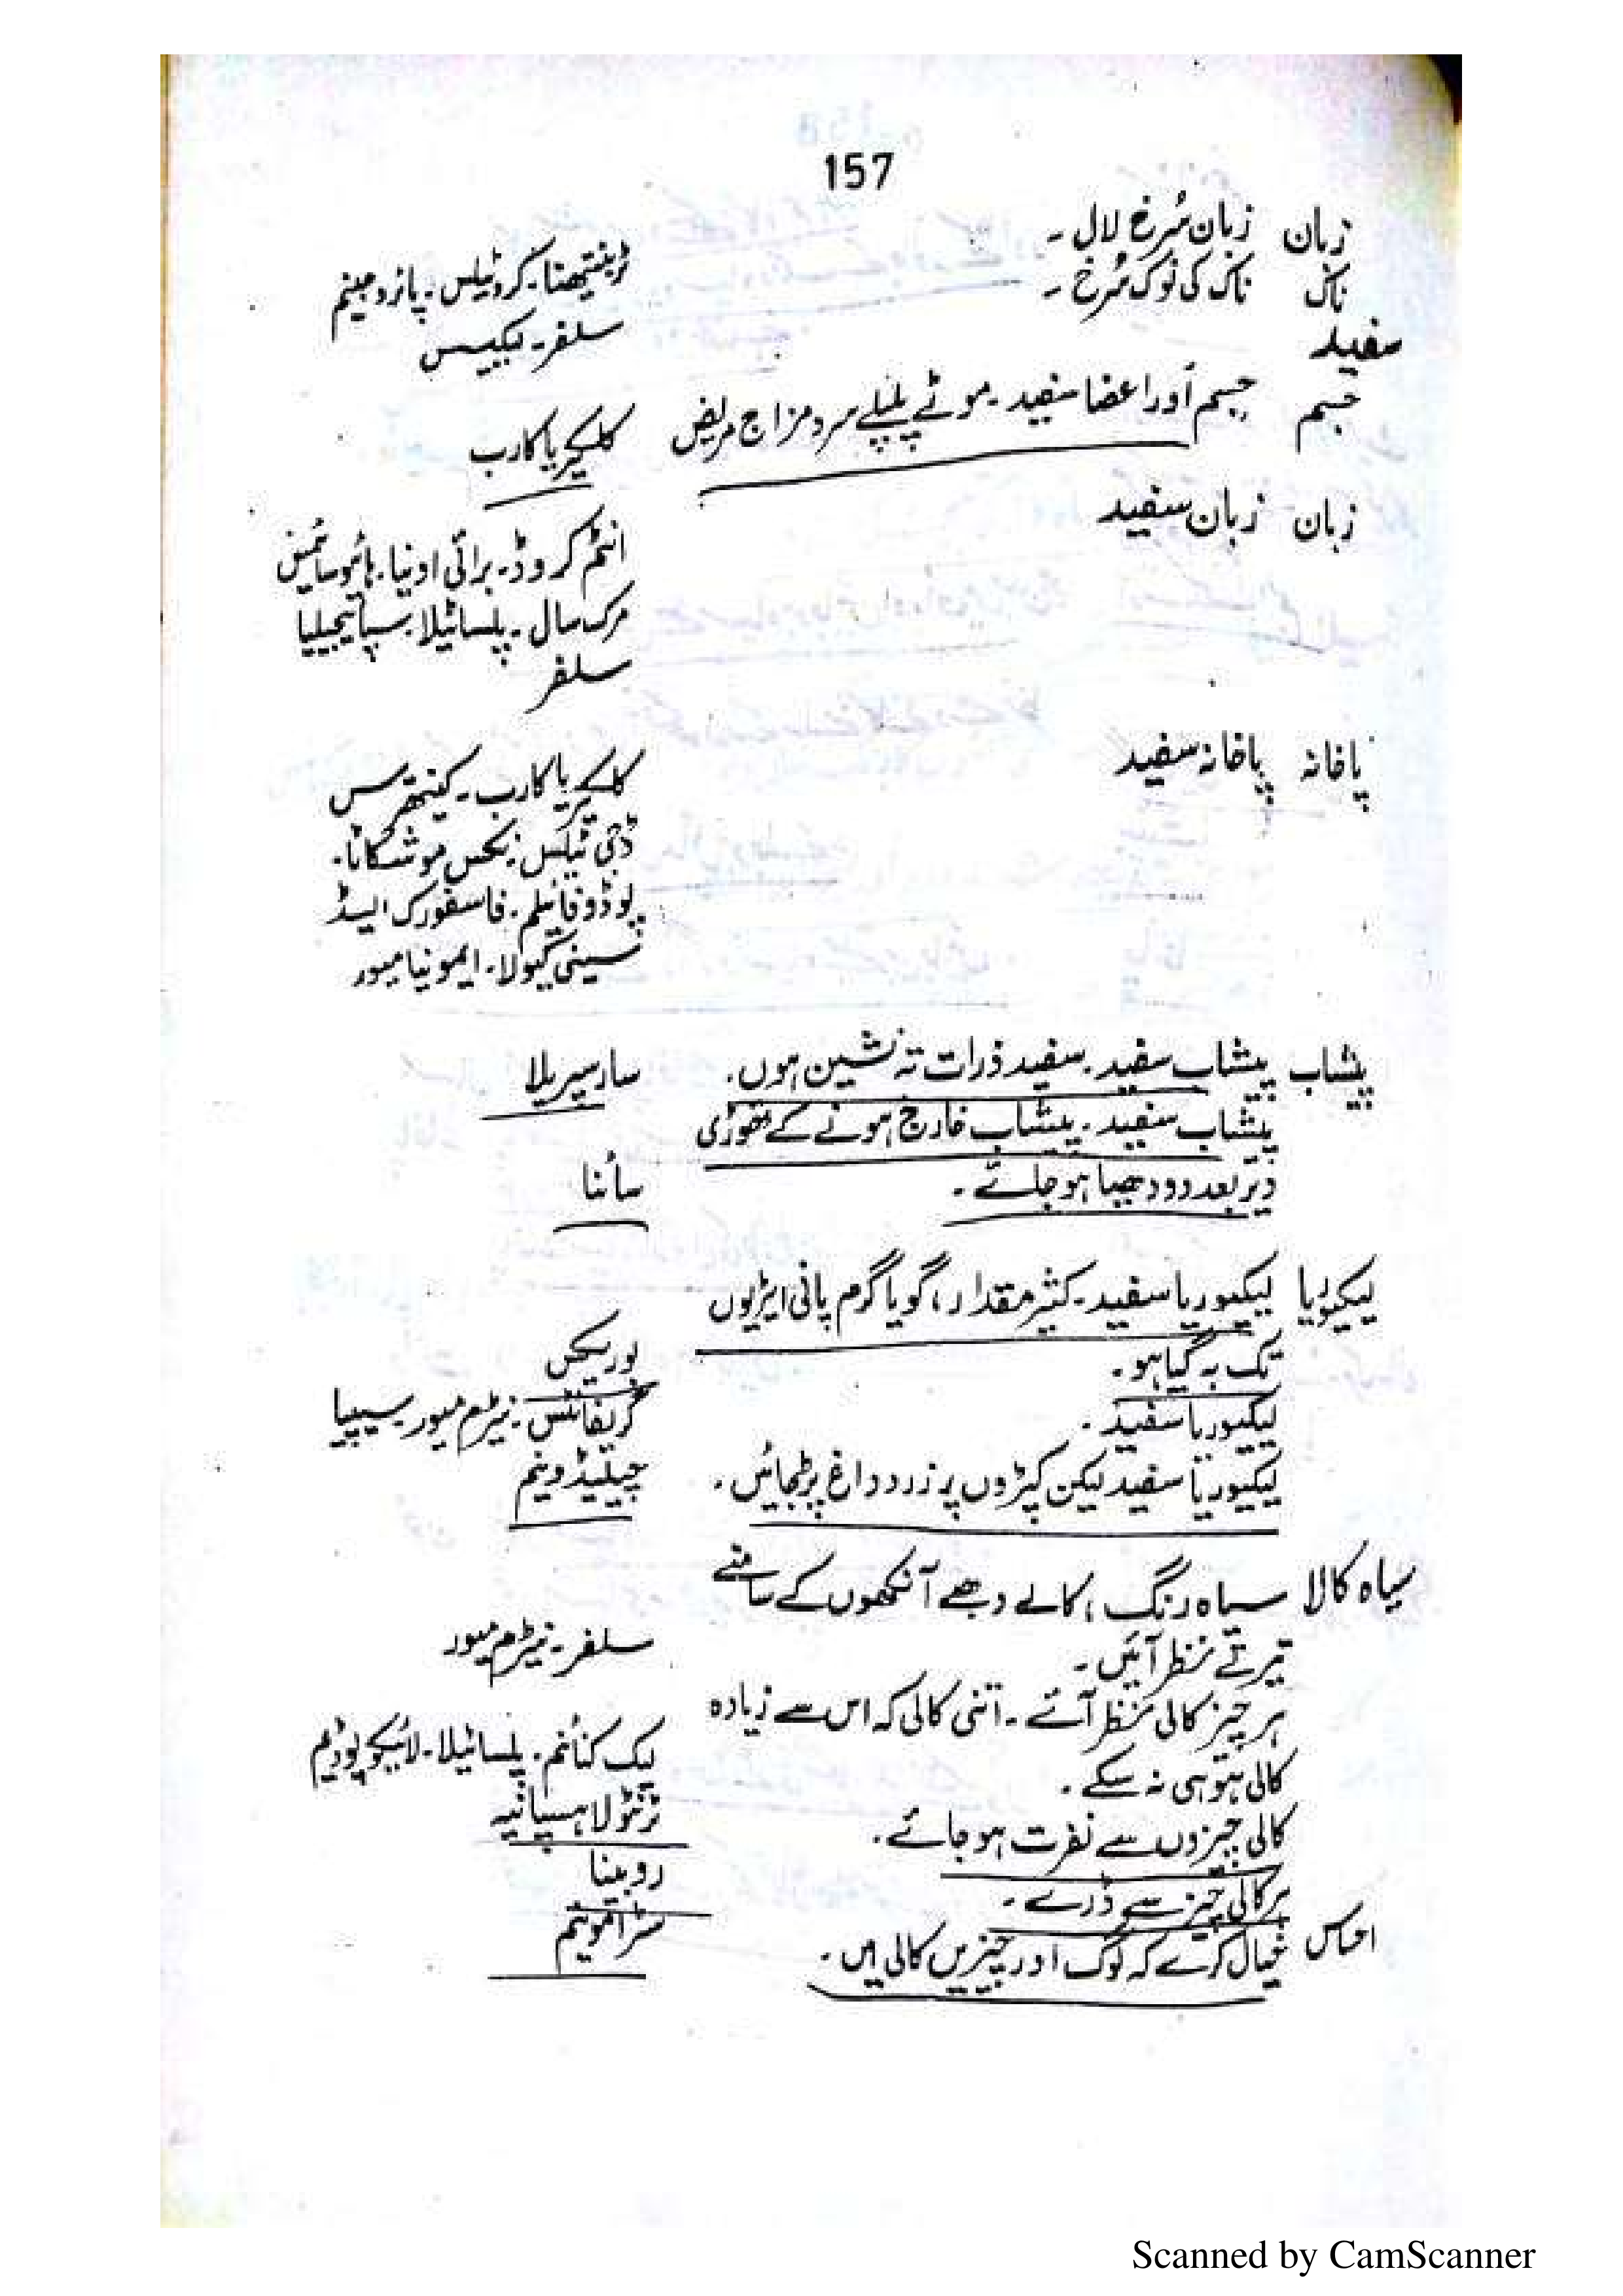 157
زبان زبان سُرخ لال ۔
ٹرینتھنا۔ کروٹیلس۔ پائروجینم
ناک ناک کی نوک سُرخ ۔
سلفر۔ بکییس
سفید
جسم جسم اور اعضا سفید۔ موٹے پلپلے سرد مزاج مریض
کلکیریا کارب
زبان زبان سفید
انٹم کروڈ۔ برائی اونیا۔ ہائیوسائمس
مرک سال ۔ پلساٹیلا۔ سپائیجیلیا
سلفر
پاخانہ پاخانہ سفید
کلکیریا کارب۔ کینتھرس
ڈجی ٹیلس۔ نکس موشکاٹا۔
پوڈوفائلم۔ فاسفورک ایسڈ
سینی کیولا۔ ایمونیا میور
پیشاب پیشاب سفید۔ سفید ذرات تہ نشین ہوں۔ سارسپریلا
پیشاب سفید۔ پیشاب خارج ہونے کے تھوڑی
دیر بعد دودھیا ہو جائے ۔ سائنا
لیکوریا لیکیوریا سفید۔ کثیر مقدار، گویا گرم پانی ایڑیوں
تک بہ گیا ہو۔ بوریکس
لیکیوریا سفید ۔ گریفائٹس۔ نیٹرم میور۔ سیپیا
لیکیوریا سفید لیکن کپڑوں پر زرد داغ پڑجائیں۔ چیلیڈونیم
سیاہ کالا سیاہ رنگ، کالے دھبے آنکھوں کے سامنے
تیرتے نظر آئیں۔ سلفر۔ نیٹرم میور
ہر چیز کالی نظر آئے ۔ اتنی کالی کہ اس سے زیادہ
کالی ہو ہی نہ سکے ۔ لیک کنائنم۔ پلساٹیلا۔ لائیکوپوڈیم
کالی چیزوں سے نفرت ہو جائے۔ ٹرنٹولا ہسپانیہ
ہر کالی چیز سے ڈرے ۔ روبینا
احساس خیال کرے کہ لوگ اور چیزیں کالی ہیں۔ سٹرامونیم
Scanned by CamScanner